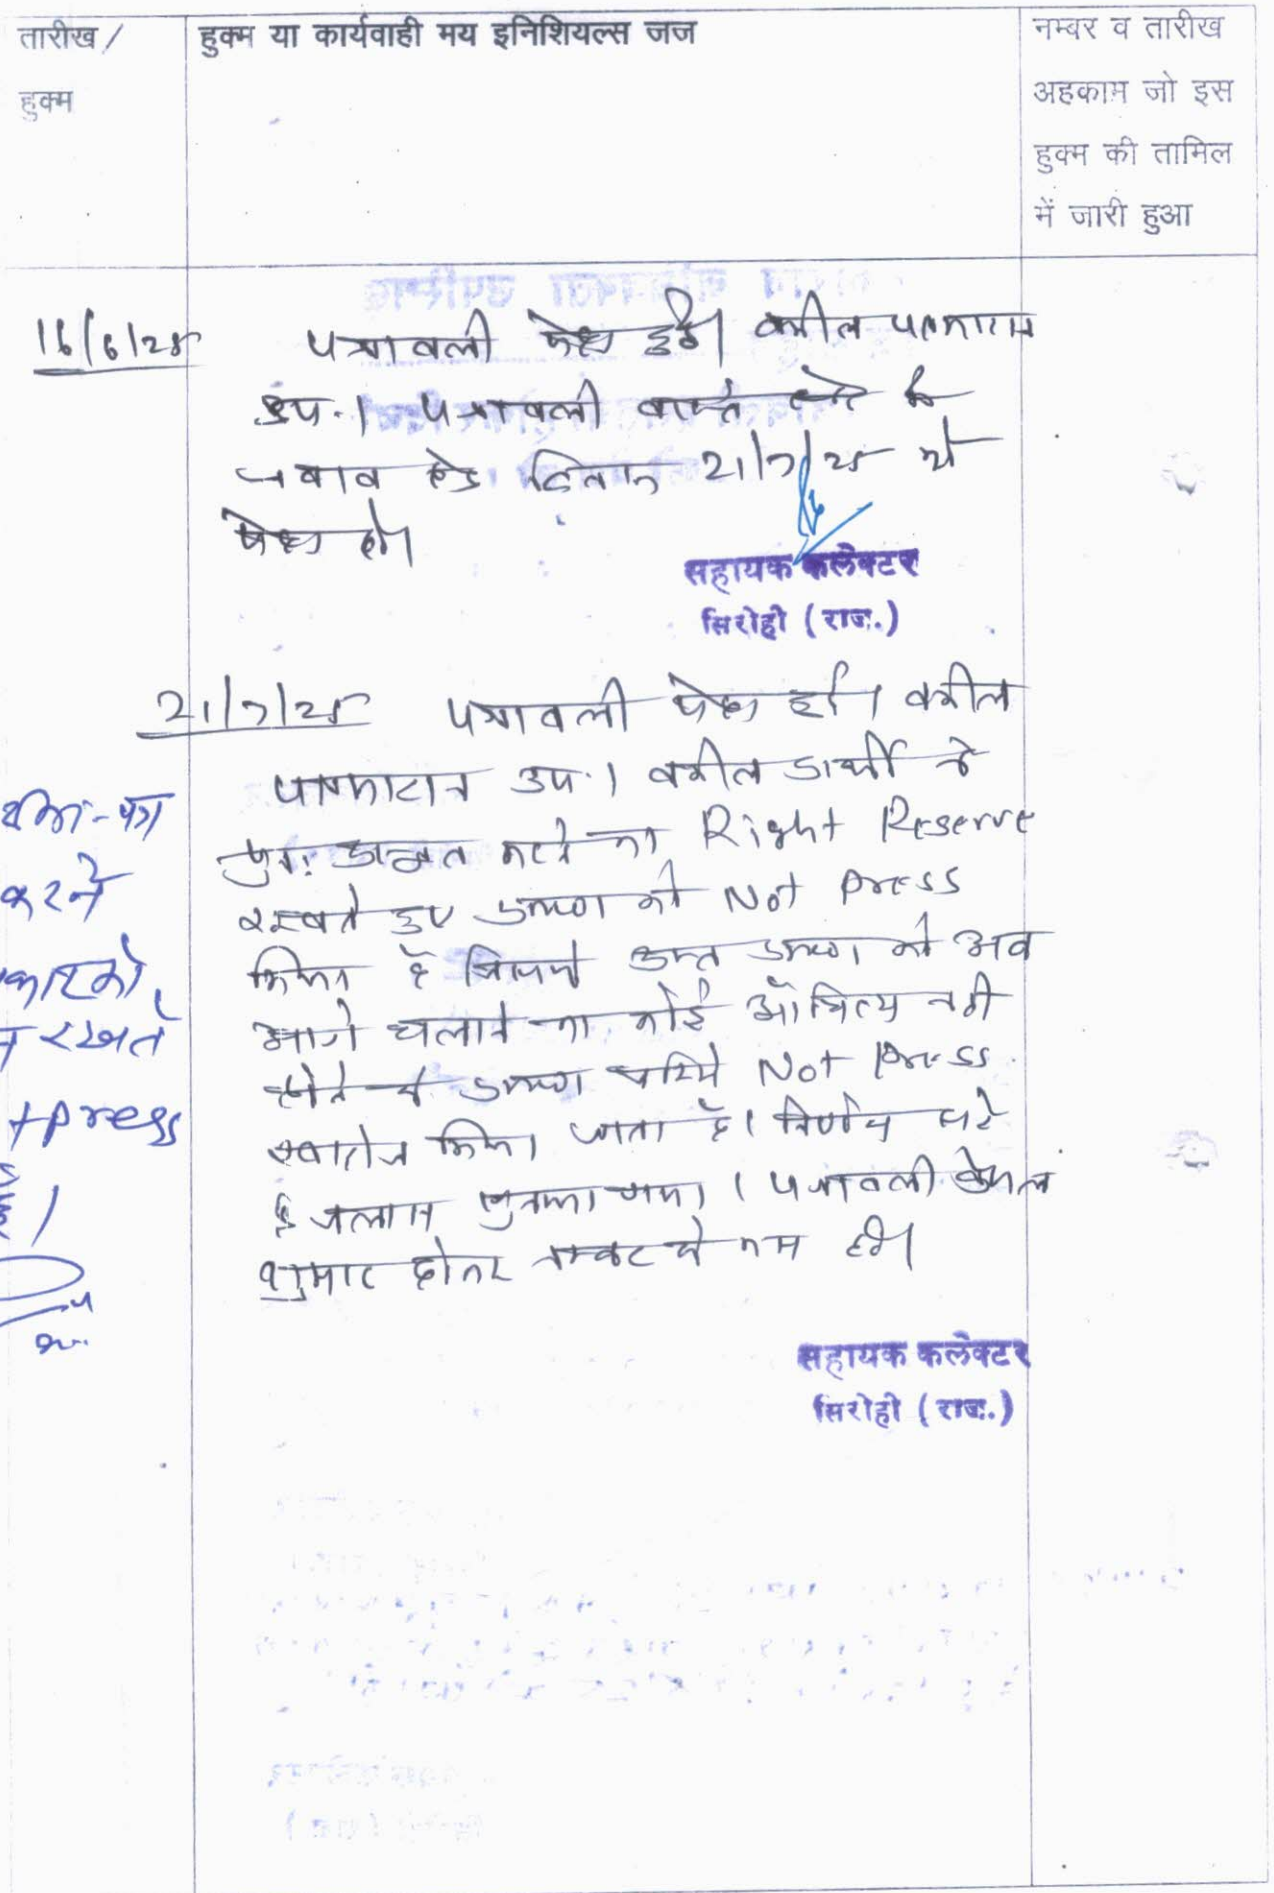 तारीख /
हुक्म
हुक्म या कार्यवाही मय इनिशियल्स जज
नम्बर व तारीख
अहकाम जो इस
हुक्म की तामिल
में जारी हुआ
16/6/25 पत्रावली पेश हुई। वकील पक्षकारान
उप.। पत्रावली वास्ते
जवाब हेतु दिनांक 21/7/25 को
पेश हो।
सहायक कलेक्टर
सिरोही (राज.)
21/7/25 पत्रावली पेश हुई। वकील
पक्षकारान उप.। वकील प्रार्थी ने
पुनः प्रस्तुत करने का Right Reserve
रखते हुए प्रकरण को Not press
किया है जिससे उक्त प्रकरण को अब
आगे चलाने का कोई औचित्य नही
होने से प्रकरण जरिये Not press
खारीज किया जाता है। निर्णय सरे
इजलास सुनाया गया। पत्रावली फैसल
शुमार होकर नम्बर से कम हो।
सहायक कलेक्टर
सिरोही (राज.)
करने
रखते
t press